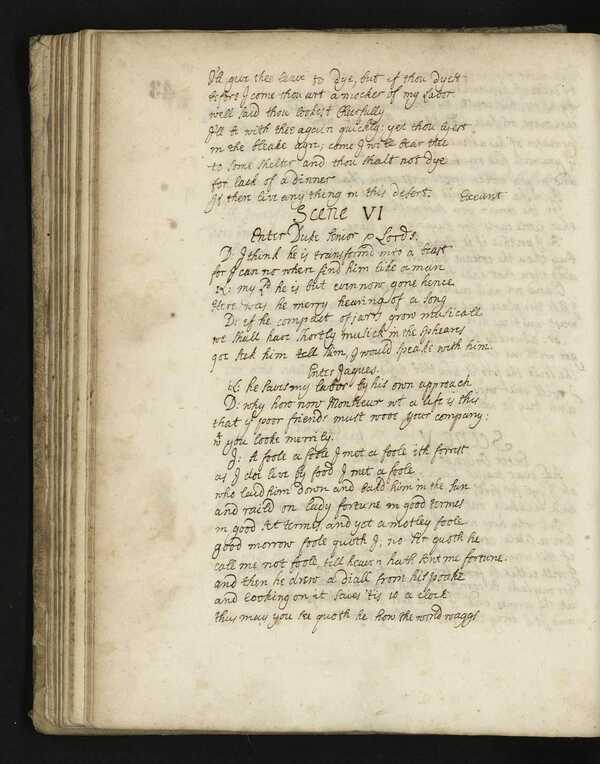 I'll give thee leave to dye, but if thou dyest
before I come thou art a mocker of my labor
well said thou lookest cheerfully
I'll be with thee again quickly: yet thou lyest
in the bleake ayre; come I will bear thee
to some shelter and thou shalt not dye
for lack of a dinner
If there live any thing in this desert. Exeunt
Scene VI
Enter Duke senior & Lords.
D: I think he is transformd into a beast
for I can no where find him like a man
L: my Ld he is but even now gone hence
Here was he merry hearing of a song
D: if he compact of jarrs grow musicall
we shall have shortly musick in the spheares
goe seek him tell him, I would speake with him
Enter Jaques.
L: he saves my labor by his own approach
D: why how now Monsieur wt a life is this
that yr poor friends must wooe your company:
wt you looke merrily.
J: A foole a foole I met a foole ith forrest
as I doe live by food I met a foole
who laid him down and baskd him in the sun
and raild on lady fortune in good termes
in good set termes, and yet a motley foole
good morrow foole quoth I, no Sr quoth he
call me not foole, till heaven hath sent me fortune.
and then he drew a diall from his poake
and looking on it sayes 'tis 10 a clock
thus may you see quoth he how the world waggs